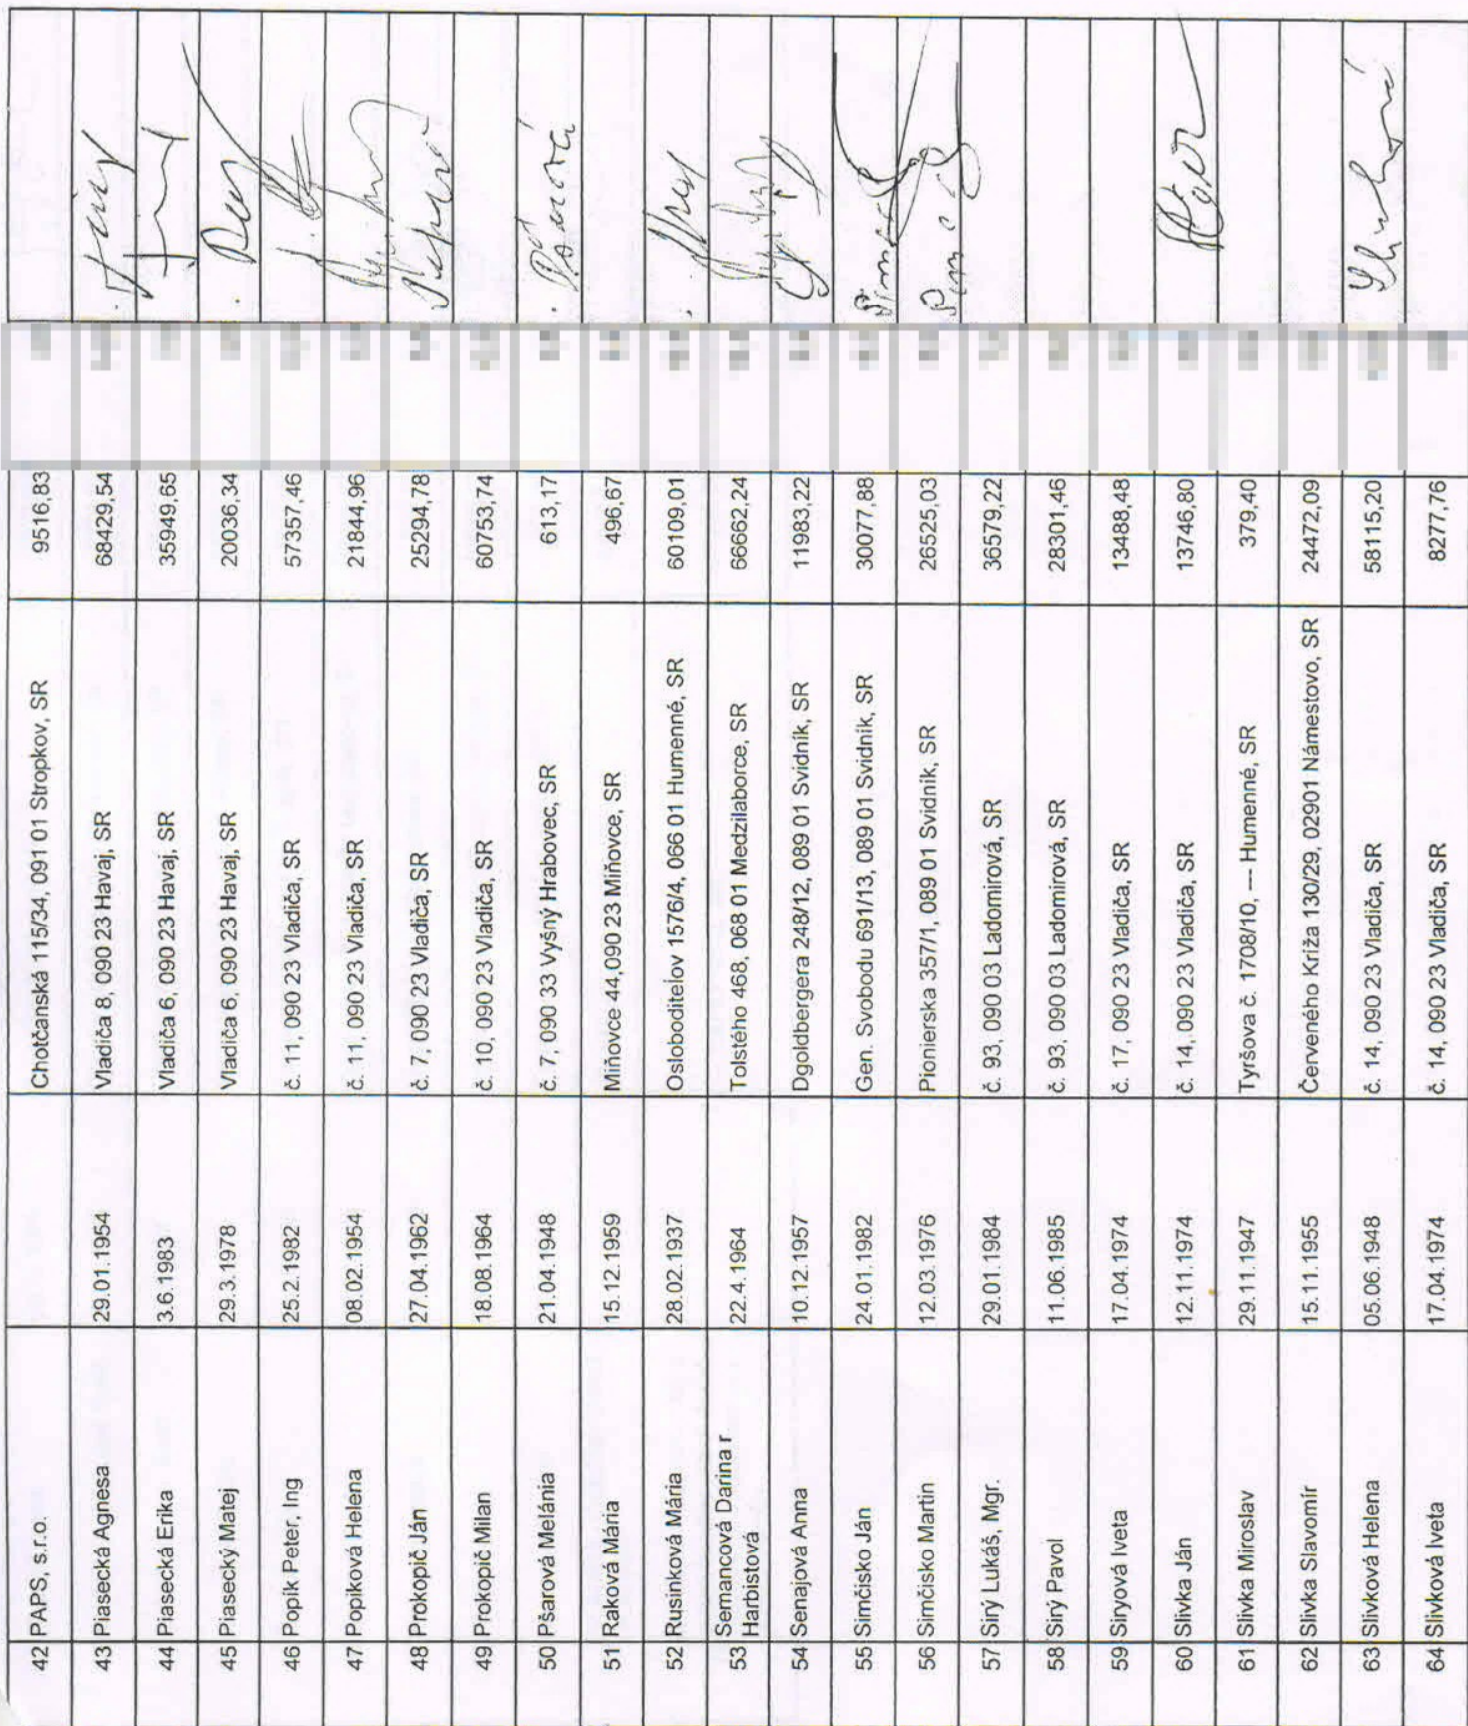 42 PAPS, s.r.o. Chotčanská 115/34, 091 01 Stropkov, SR 9516,83
43 Piasecká Agnesa 29.01.1954 Vladiča 8, 090 23 Havaj, SR 68429,54
44 Piasecká Erika 3.6.1983 Vladiča 6, 090 23 Havaj, SR 35949,65
45 Piasecký Matej 29.3.1978 Vladiča 6, 090 23 Havaj, SR 20036,34
46 Popik Peter, Ing 25.2.1982 č. 11, 090 23 Vladiča, SR 57357,46
47 Popiková Helena 08.02.1954 č. 11, 090 23 Vladiča, SR 21844,96
48 Prokopič Ján 27.04.1962 č. 7, 090 23 Vladiča, SR 25294,78
49 Prokopič Milan 18.08.1964 č. 10, 090 23 Vladiča, SR 60753,74
50 Pšarová Melánia 21.04.1948 č. 7, 090 33 Vyšný Hrabovec, SR 613,17
51 Raková Mária 15.12.1959 Miňovce 44,090 23 Miňovce, SR 496,67
52 Rusinková Mária 28.02.1937 Osloboditeľov 1576/4, 066 01 Humenné, SR 60109,01
53 Semancová Darina r Harbistová 22.4.1964 Tolstého 468, 068 01 Medzilaborce, SR 66662,24
54 Senajová Anna 10.12.1957 Dgoldbergera 248/12, 089 01 Svidník, SR 11983,22
55 Simčisko Ján 24.01.1982 Gen. Svobodu 691/13, 089 01 Svidník, SR 30077,88
56 Simčisko Martin 12.03.1976 Pionierska 357/1, 089 01 Svidník, SR 26525,03
57 Sirý Lukáš, Mgr. 29.01.1984 č. 93, 090 03 Ladomirová, SR 36579,22
58 Sirý Pavol 11.06.1985 č. 93, 090 03 Ladomirová, SR 28301,46
59 Siryová Iveta 17.04.1974 č. 17, 090 23 Vladiča, SR 13488,48
60 Slivka Ján 12.11.1974 č. 14, 090 23 Vladiča, SR 13746,80
61 Slivka Miroslav 29.11.1947 Tyršova č. 1708/10, --- Humenné, SR 379,40
62 Slivka Slavomír 15.11.1955 Červeného Kríža 130/29, 02901 Námestovo, SR 24472,09
63 Slivková Helena 05.06.1948 č. 14, 090 23 Vladiča, SR 58115,20
64 Slivková Iveta 17.04.1974 č. 14, 090 23 Vladiča, SR 8277,76